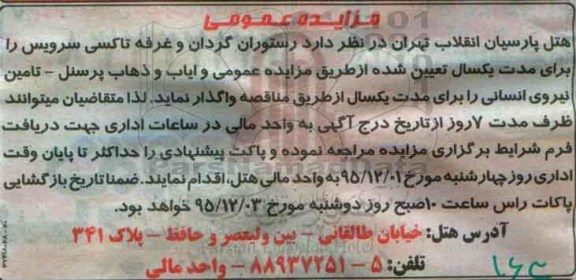 مزایده عمومی
هتل پارسیان انقلاب تهران در نظر دارد رستوران گردان و غرفه تاکسی سرویس را
برای مدت یکسال تعیین شده ازطریق مزایده عمومی و ایاب و ذهاب پرسنل - تامین
نیروی انسانی را برای مدت یکسال ازطریق مناقصه واگذار نماید. لذا متقاضیان میتوانند
ظرف مدت ۷روز ازتاریخ درج آگهی به واحد مالی در ساعات اداری جهت دریافت
فرم شرایط برگزاری مزایده مراجعه نموده و پاکت پیشنهادی را حداکثر تا پایان وقت
اداری روز چهارشنبه مورخ ۹۵/۱۲/۰۱ به واحد مالی هتل، اقدام نمایند. ضمنا تاریخ بازگشایی
پاکات راس ساعت ۱۰صبح روز دوشنبه مورخ ۹۵/۱۲/۰۳ خواهد بود.
آدرس هتل: خیابان طالقانی - بین ولیعصر و حافظ - پلاک ۳۴۱
تلفن: ۵ - ۸۸۹۳۷۲۵۱ - واحد مالی